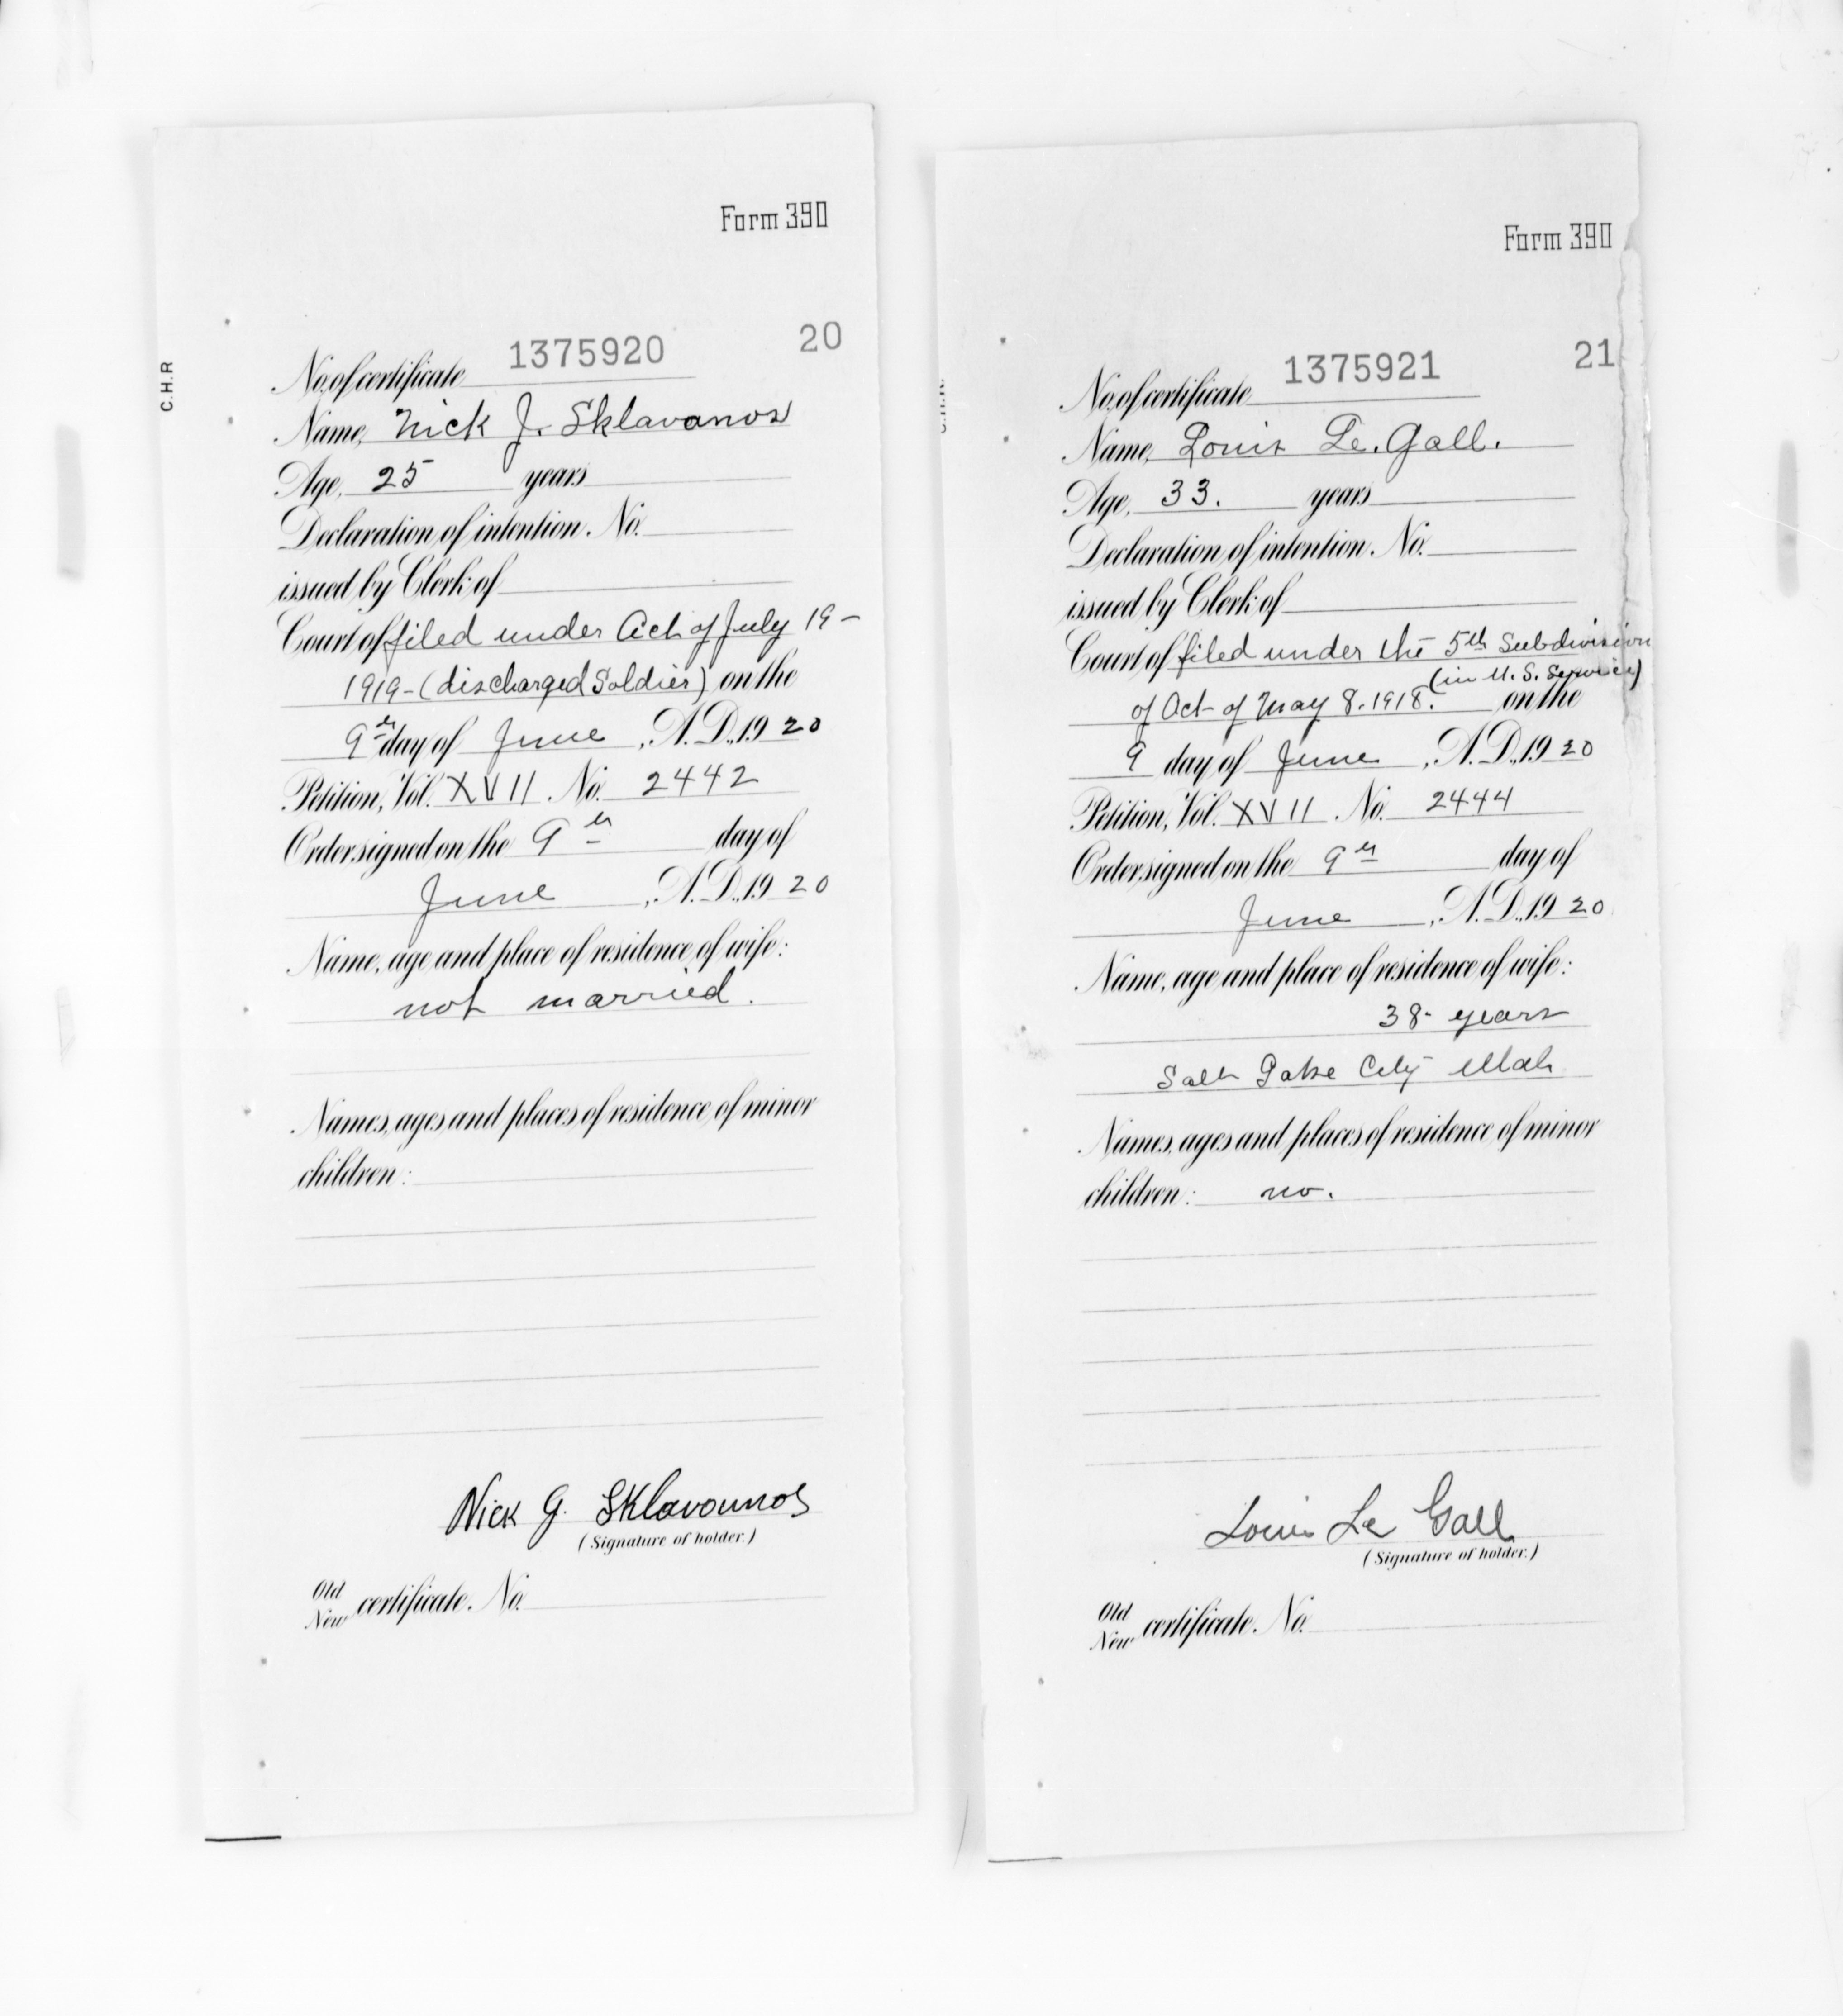 Form 390
C.H.R
20
No. of certificate 1375920
Name, Nick J. Sklavanos
Age, 25 years
Declaration of intention. No.
issued by Clerk of
Court of filed under Act of July 19-
1919-(discharged Soldier) on the
9th day of June, A.D., 1920
Petition, Vol. XVII No. 2442
Order signed on the 9th day of
June, A.D., 1920
Name, age and place of residence of wife:
not married.
Names, ages and places of residence of minor
children:
Nick G. Sklavounos
(Signature of holder.)
Old
New certificate. No.
Form 390
21
No. of certificate 1375921
Name, Louis Le. Gall.
Age, 33. years
Declaration of intention. No.
issued by Clerk of
Court of filed under the 5th Subdivision
(in U.S. Service)
of Act of May 8. 1918. on the
9 day of June, A.D., 1920
Petition, Vol. XVII No. 2444
Order signed on the 9th day of
June, A.D., 1920
Name, age and place of residence of wife:
38- years
Salt Lake City Utah
Names, ages and places of residence of minor
children: no.
Louis Le Gall
(Signature of holder.)
Old
New certificate. No.